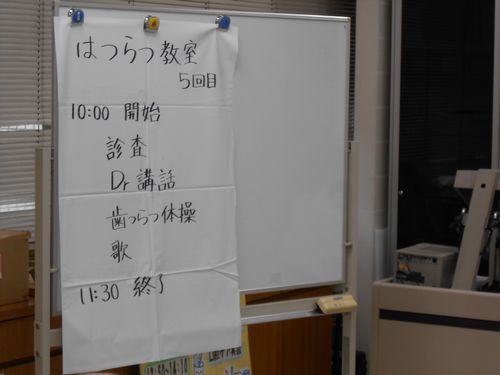 はつらつ教室
5回目
10:00 開始
診査
Dr講話
歯つらつ体操
歌
11:30 終了